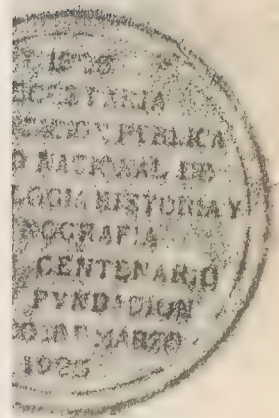 ECRETARIA
PUBLICA
O NACIONAL DE
LOGIA HISTORIA Y
NOGRAFIA
CENTENARIO
FVNDACION
MARZO
1925